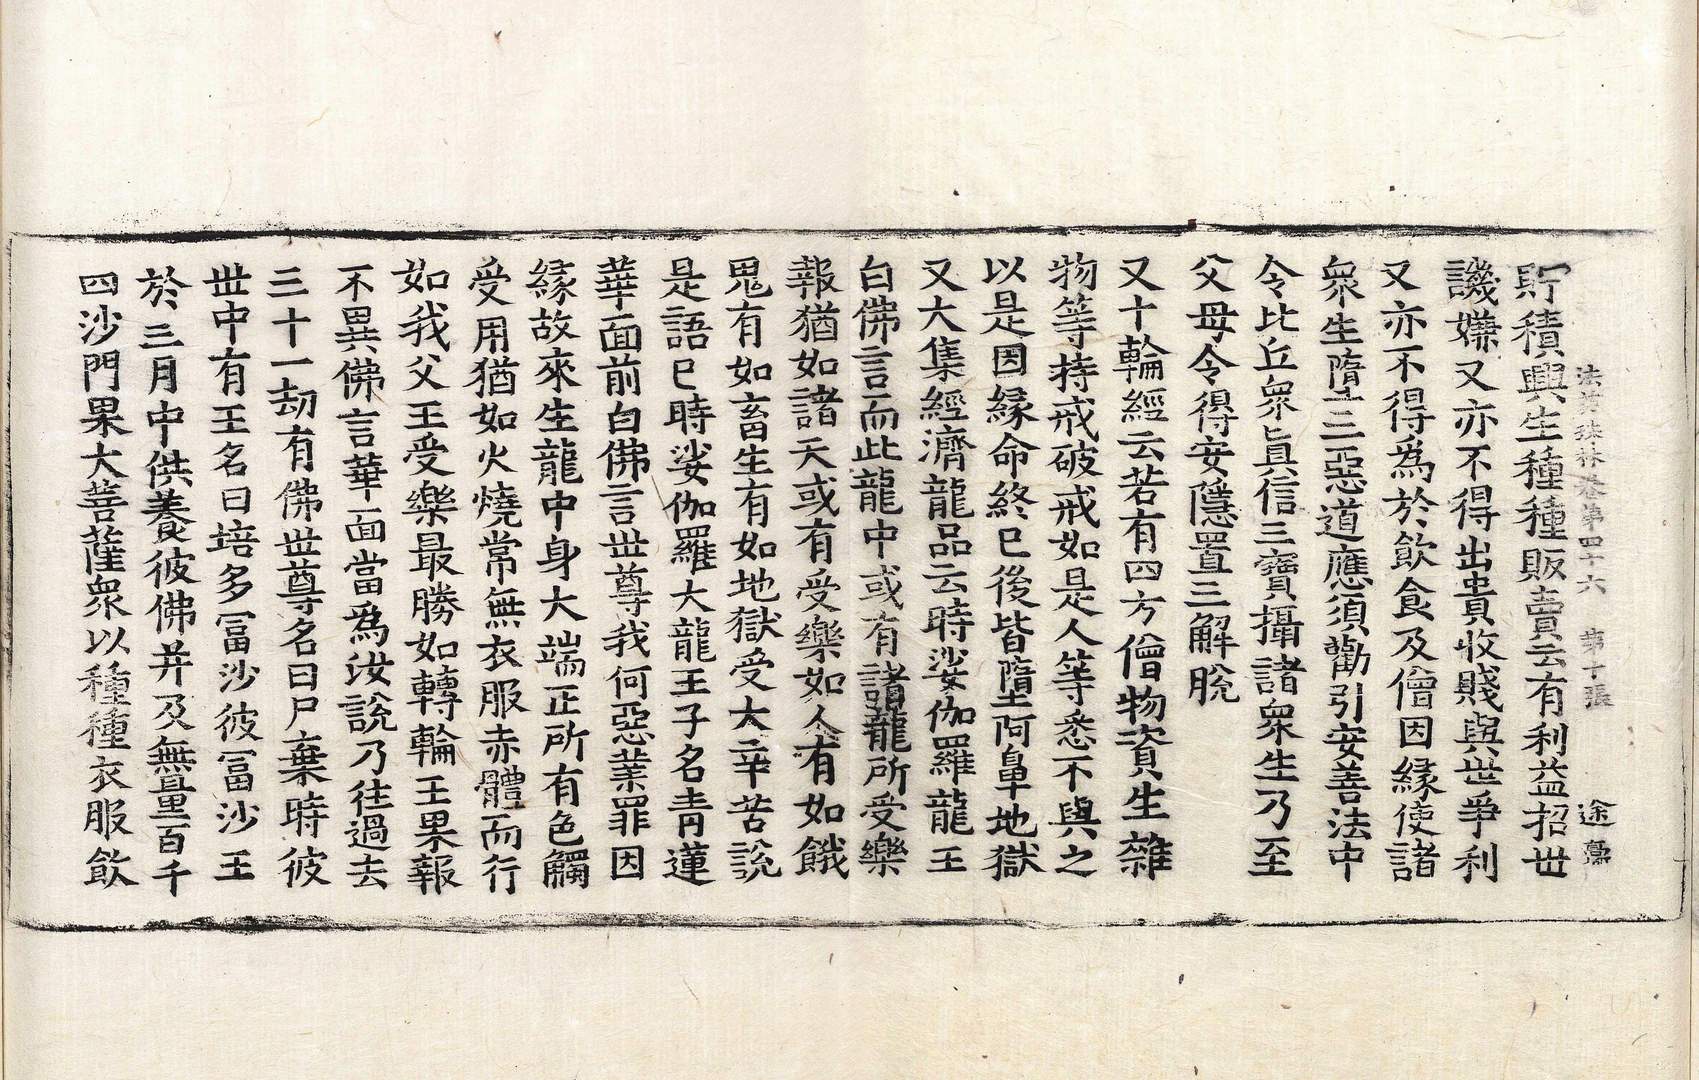 法苑珠林卷第四十六 第十張 途
貯積興生種種販賣云有利益招世
譏嫌又亦不得出貴收賤與世爭利
又亦不得為於飲食及僧因緣使諸
衆生墮三惡道應須勸引安善法中
令比丘衆眞信三寶攝諸衆生乃至
父母令得安隱置三解脫
又十輪經云若有四方僧物資生雜
物等持戒破戒如是人等悉不與之
以是因緣命終已後皆墮阿鼻地獄
又大集經濟龍品云時娑伽羅龍王
白佛言而此龍中或有諸龍所受樂
報猶如諸天或有受樂如人有如餓
鬼有如畜生有如地獄受大辛苦說
是語已時娑伽羅大龍王子名青蓮
華面前白佛言世尊我何惡業罪因
緣故來生龍中身大端正所有色觸
受用猶如火燒常無衣服赤體而行
如我父王受樂最勝如轉輪王果報
不異佛言華面當為汝說乃往過去
三十一劫有佛世尊名曰尸棄時彼
世中有王名曰培多冨沙彼冨沙王
於三月中供養彼佛并及無量百千
四沙門果大菩薩衆以種種衣服飲